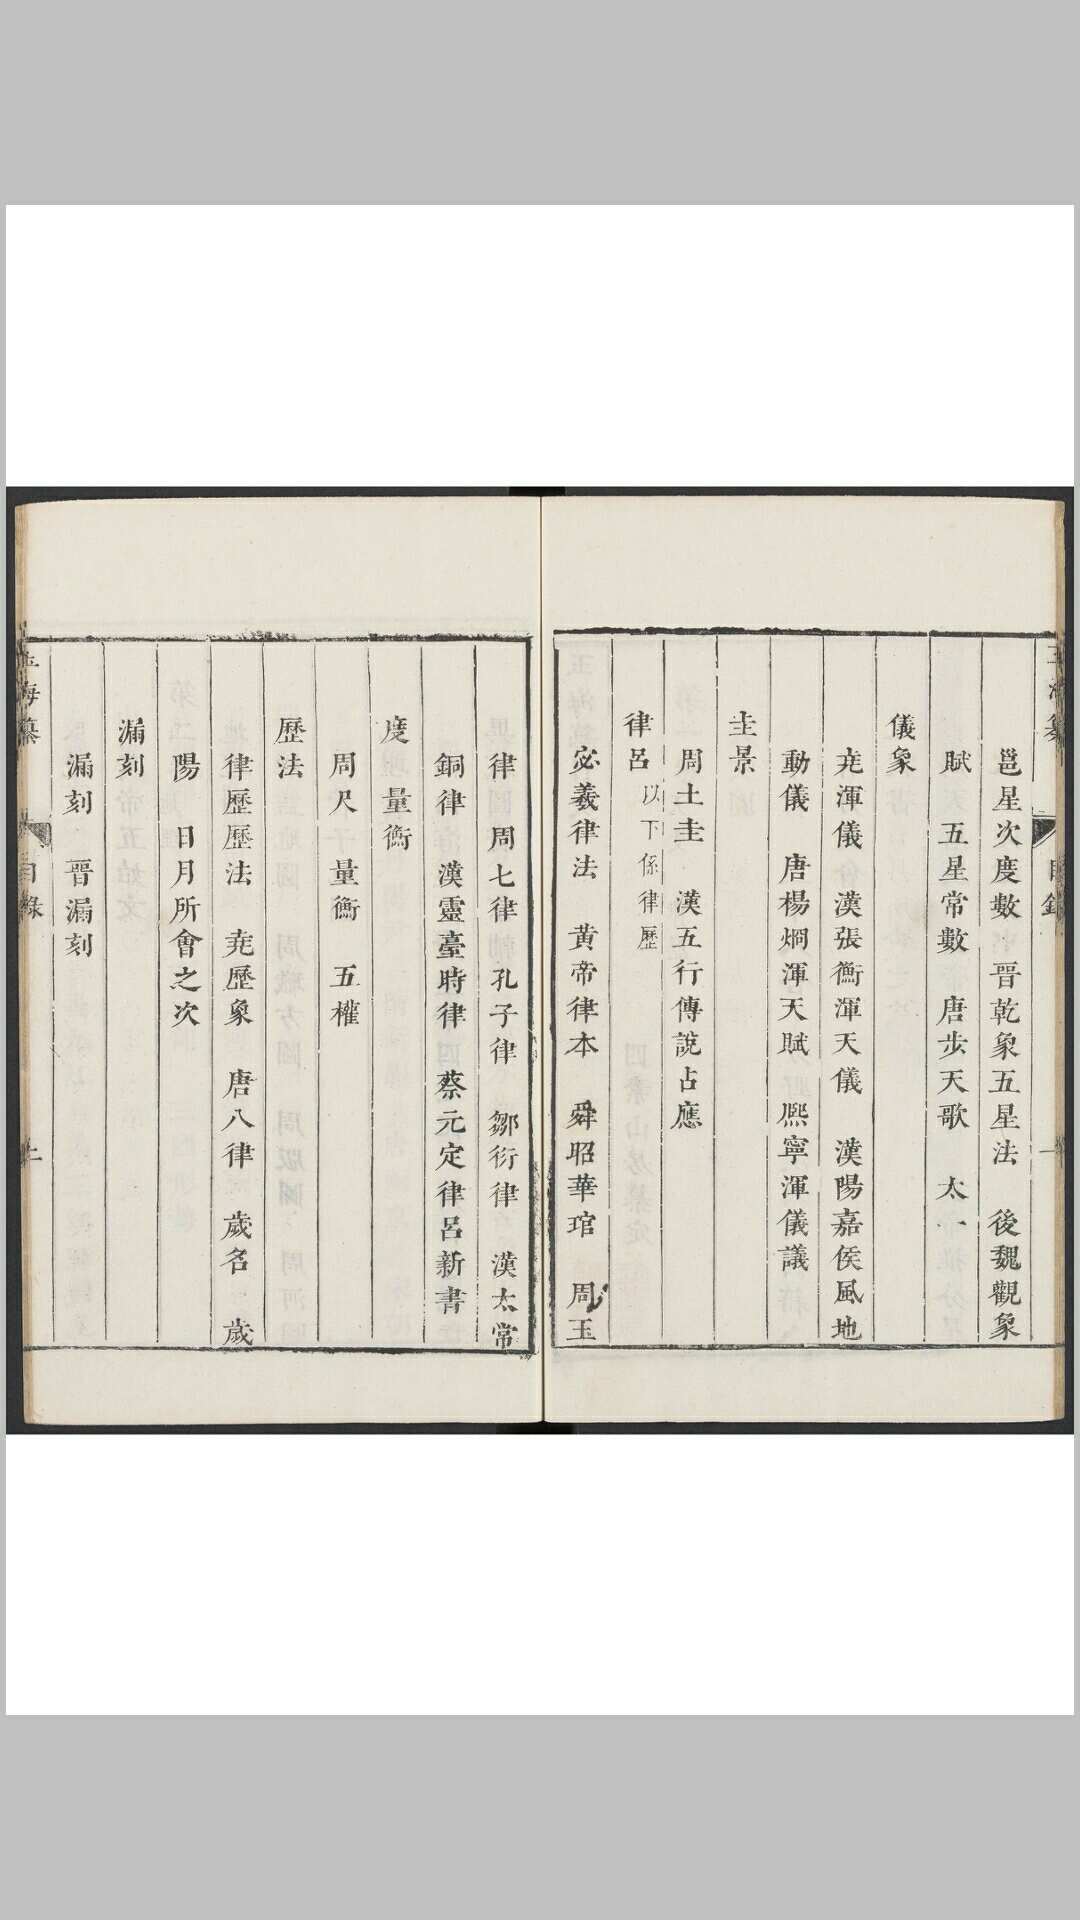 邕星次度數　晉乾象五星法　後魏觀象
賦　五星常數　唐步天歌　太一
儀象
尭渾儀　漢張衡渾天儀　漢陽嘉侯風地
動儀　唐楊烱渾天賦　熈寧渾儀議
圭景
周土圭　漢五行傳說占應
律呂以下係律歷
宓羲律法　黃帝律本　舜昭華琯　周玉
律　周七律　孔子律　鄒衍律　漢太常
銅律　漢靈臺時律　蔡元定律呂新書
度　量衡
周尺　量衡　五權
歷法
律歷歷法　尭歷象　唐八律　歲名　歲
陽　日月所會之次
漏刻
漏刻　晉漏刻
海纂　目錄